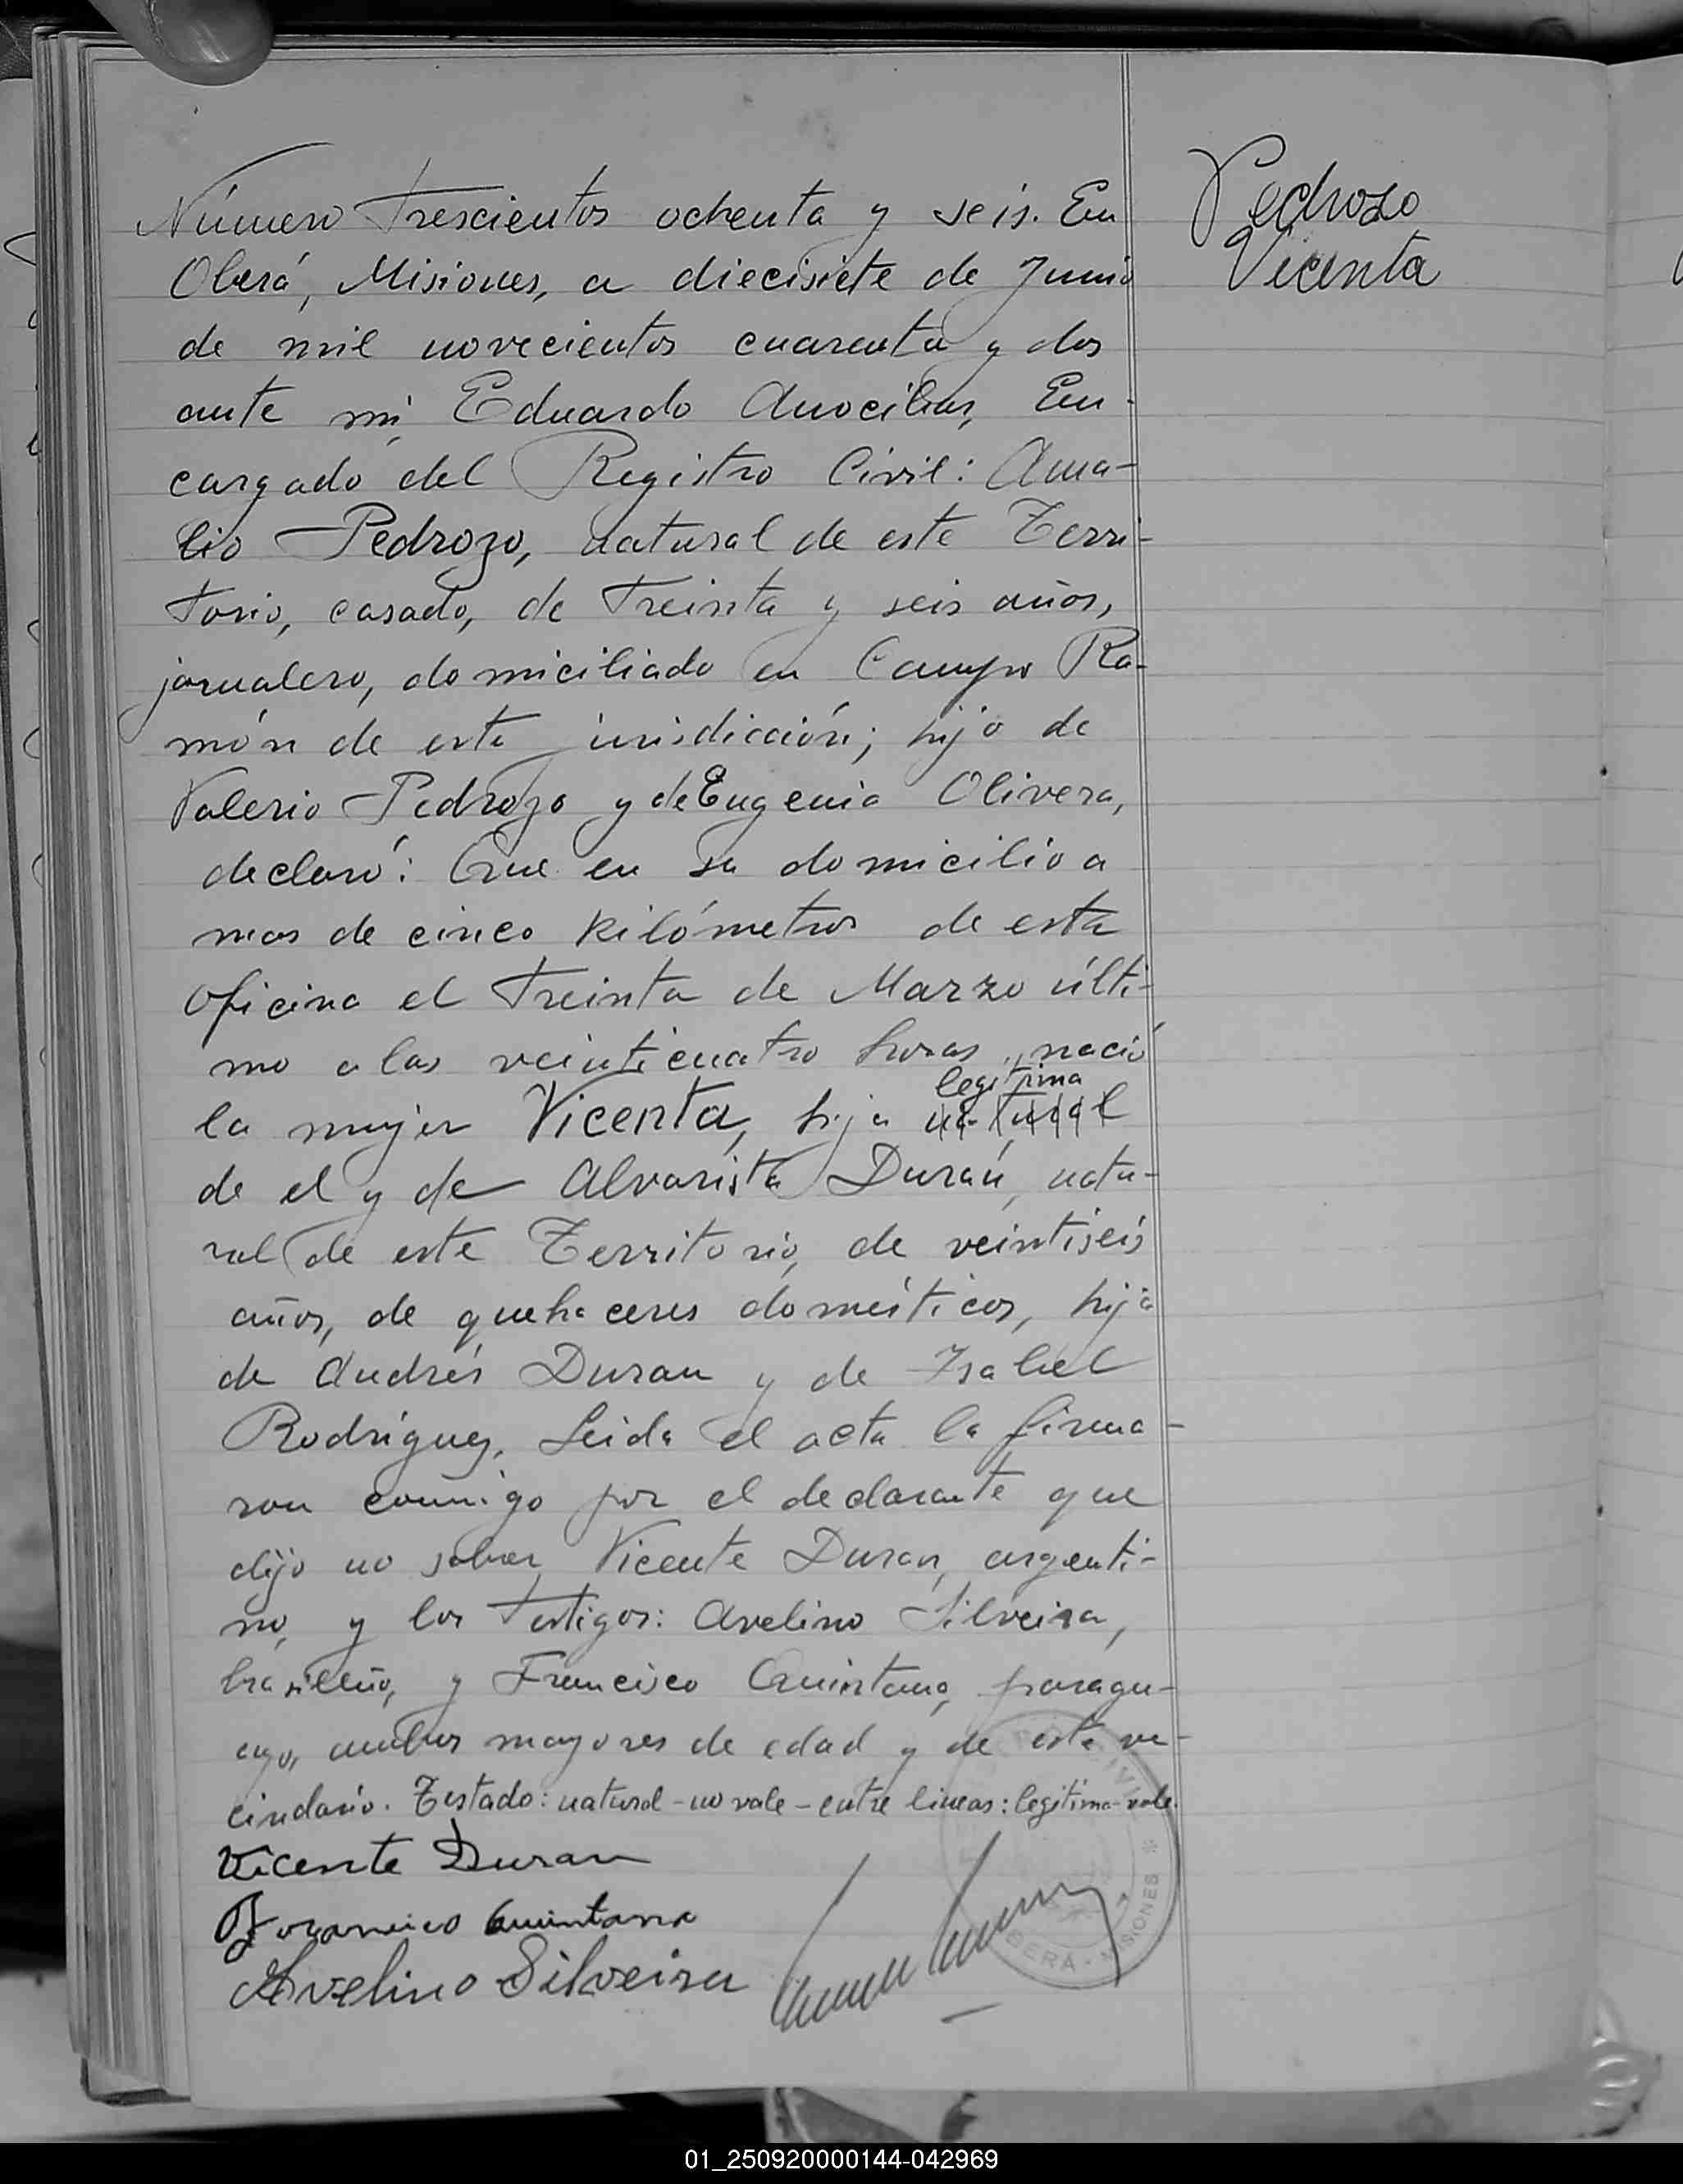 Número trescientos ochenta y seis. En
Oberá, Misiones, a diecisiete de Junio
de mil novecientos cuarenta y dos
ante mí, Eduardo En-
cargado del Registro Civil: Ama-
lio Pedrozo, natural de este Terri-
torio, casado, de treinta y seis años,
jornalero, domiciliado en Campo Ra-
món de esta jurisdicción; hijo de
Valerio Pedrozo y de Eugenia Olivera,
declaró: Que en su domicilio a
mas de cinco kilómetros de esta
oficina el treinta de Marzo últi-
mo a las veinticuatro horas, nació
legitima
la mujer Vicenta, hija natural
de el y de Alvarista Durán, natu-
ral de este Territorio, de veintiseis
años, de quehaceres domésticos, hija
de Andrés Duran y de Isabel
Rodríguez. Leida el acta la firma-
ron conmigo por el declarante que
dijo no saber, Vicente Duran, argenti-
no, y los testigos: Avelino Silveira,
brasileño, y Francisco Quintana, paragu-
ayo, ambos mayores de edad y de este ve-
cindario. Testado: natural - no vale - entre lineas: legitima - vale.
Vicente Duran
Francisco Quintana
Avelino Silveira
Pedrozo
Vicenta
OBERÁ - MISIONES
01_250920000144-042969